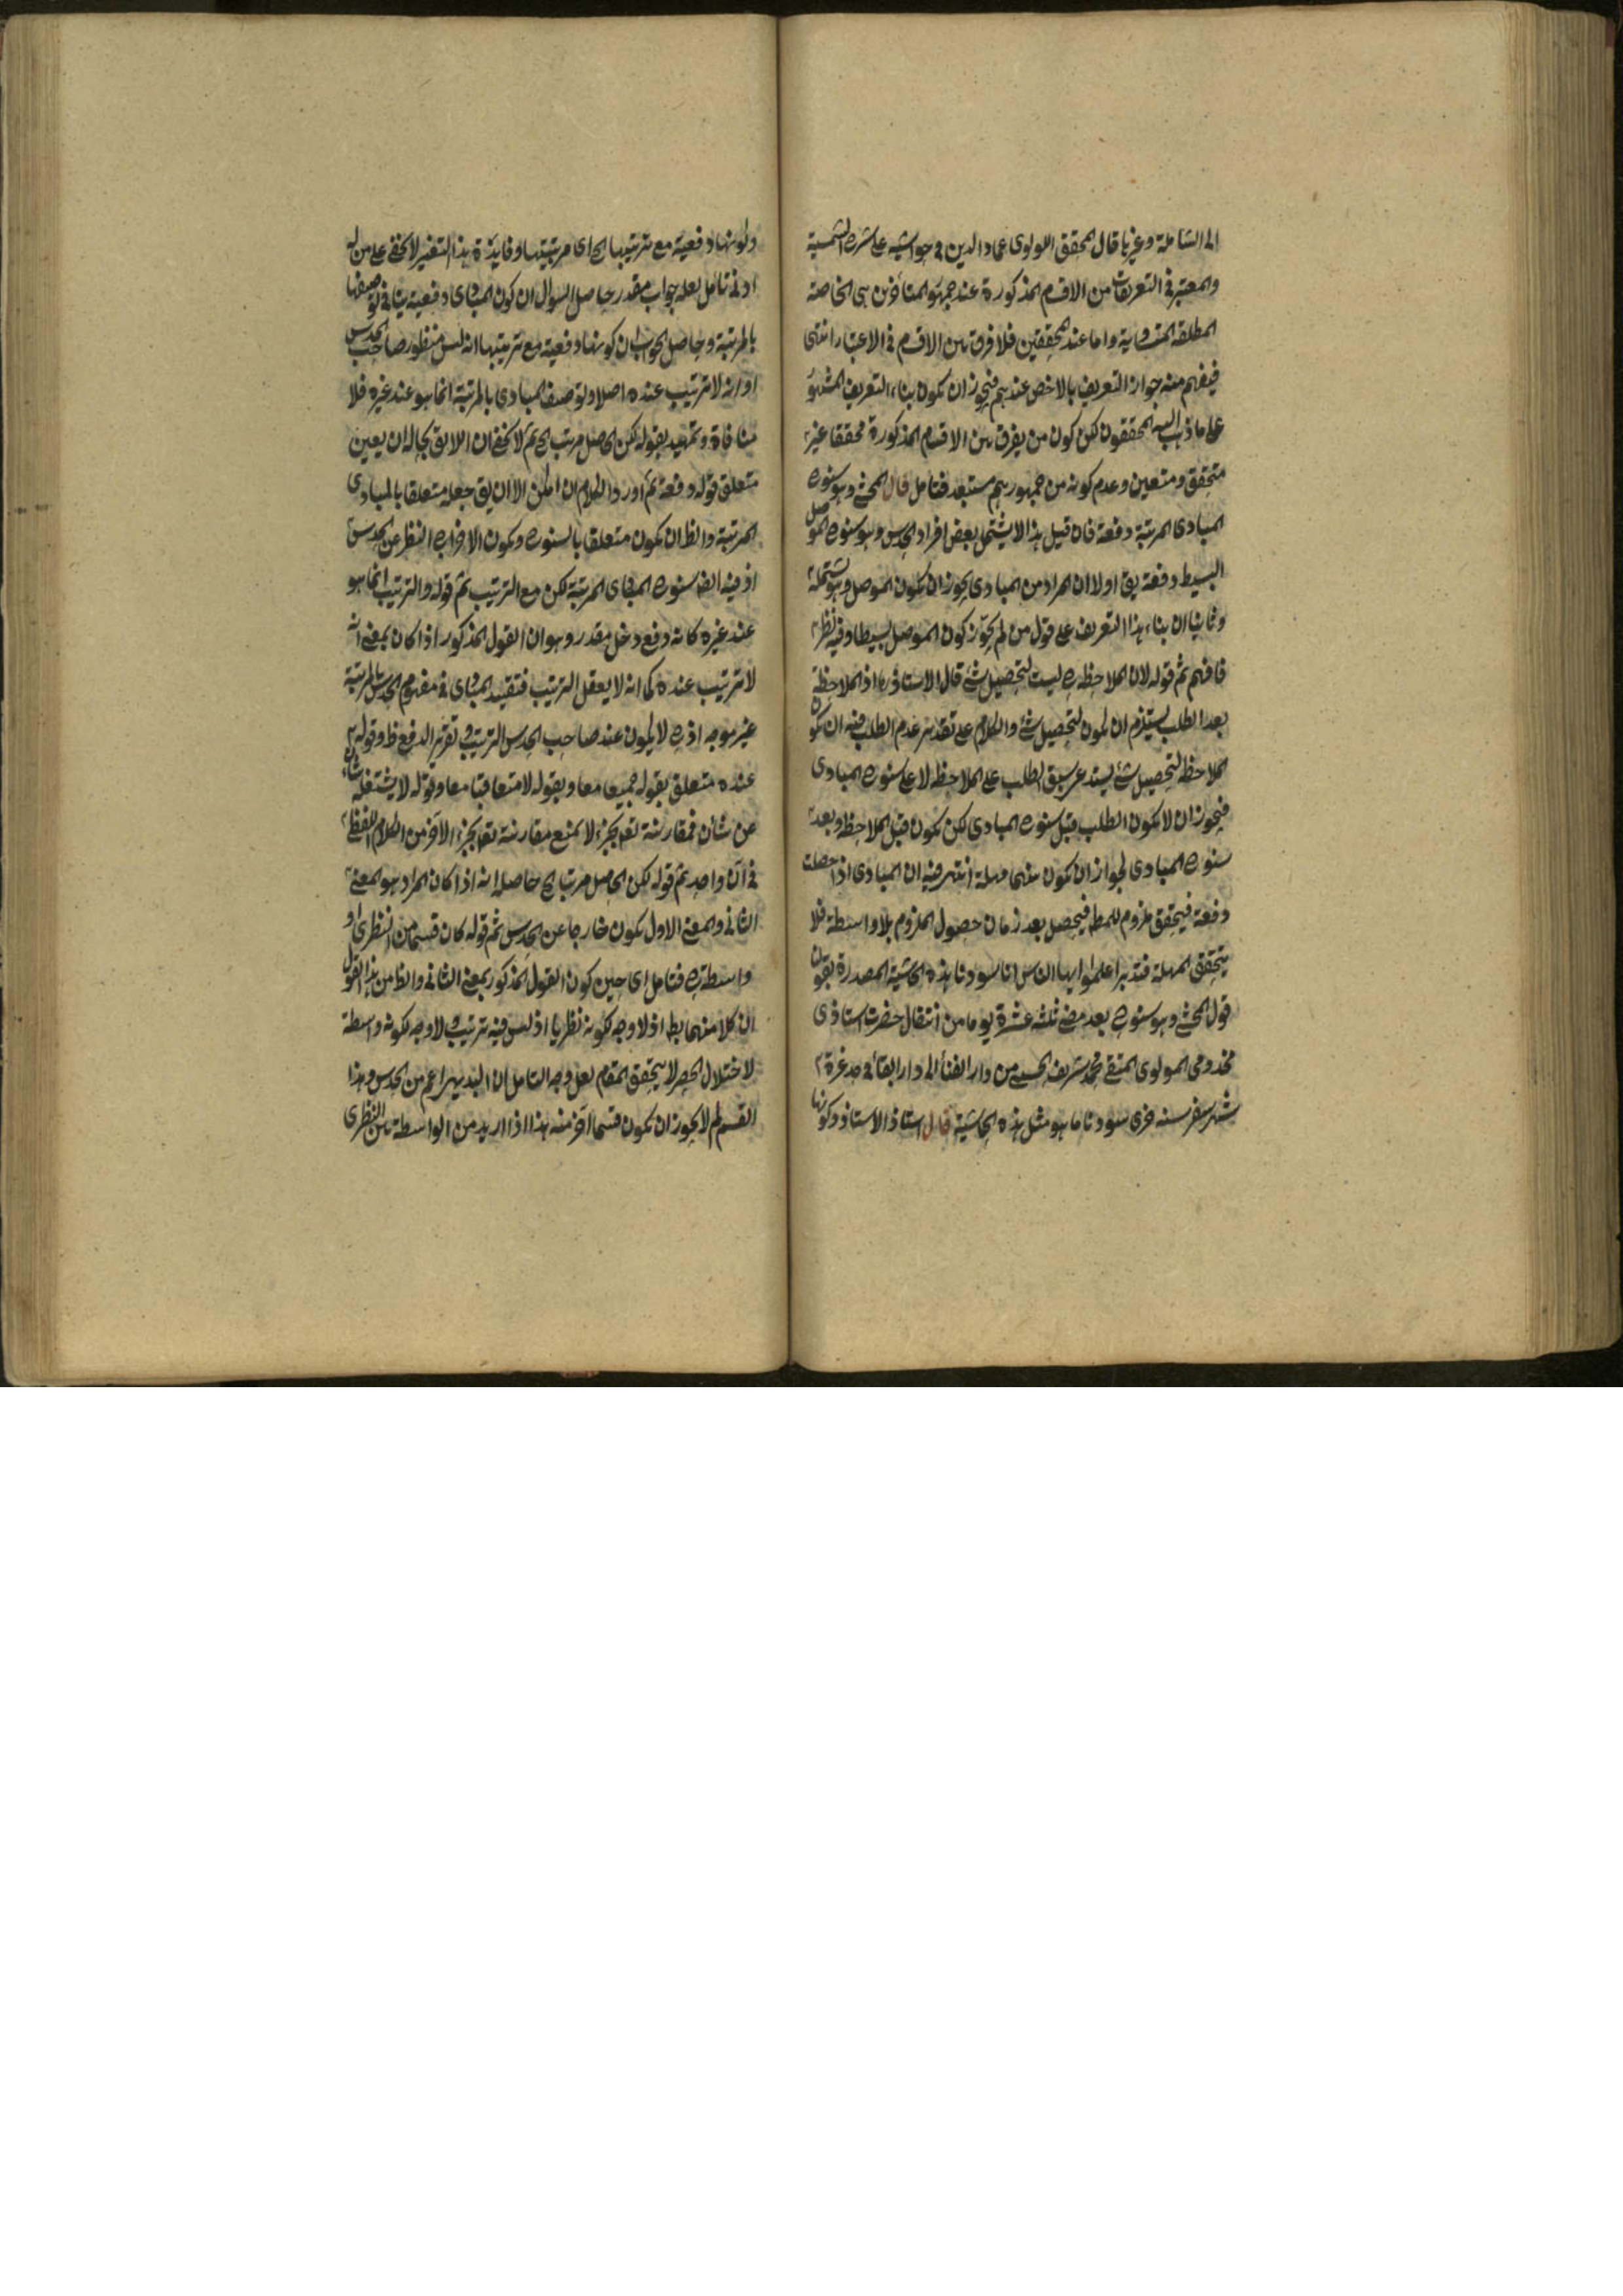 الى الشاملة وغيرها قال المحقق اللولوى عماد الدين فى حواشيه على شرح الشمسية
والمعتبر فى التعريفات من الاقسام المذكورة عند جمهور المتأخرين هى الخاصة
المطلقة المتساوية واما عند المحققين فلا فرق بين الاقسام فى الاعتبار انتهى
فيفهم منه جواز التعريف بالاخص عندهم فيجوز ان يكون بناء التعريف المشهور
على ما ذهب اليه المحققون لكن كون من يفرق بين الاقسام المذكورة محققا غير
متحقق ومتعين وعدم كونه من جمهورهم مستبعد فتامل قال المحشى وهو سنوح
المبادى المرتبة دفعة فان قيل هذا لا يشتمل بعض افراد الحدس وهو سنوح الموصل
البسيط دفعة يق اولا ان المراد من المبادى يجوز ان يكون الموصل وهو يشتمله
وثانيا ان بناء هذا التعريف على قول من لم يجوّز كون الموصل بسيطا وفيه نظر
فافهم ثم قوله لان الملاحظة ح ليست لتحصيل شئ قال الاستاذ رح اذ الملاحظة
بعد الطلب يستلزم ان يكون لتحصيل شئ والكلام على تقدير عدم الطلب فيه ان كون
الملاحظة لتحصيل شئ يستدعى سبق الطلب على الملاحظة لا على سنوح المبادى
فيجوز ان لا يكون الطلب قبل سنوح المبادى لكن يكون قبل الملاحظة وبعد
سنوح المبادى لجواز ان يكون بينهما مهلة انتهى فيه ان المبادى اذا حصلت
دفعة فيتحقق ملزوم للمط فيحصل بعد زمان حصول الملزوم بلا واسطة فلا
يتحقق المهلة فتدبر اعلموا ايها الناس انا سودنا هذه الحاشية المصدرة بقولنا
قول المحشى وهو سنوح بعد مضى ثلثه عشرة يوما من انتقال حضرت استاذى
مخدومى المولوى المتقى محمد شريف الحسينى من دار الفنأ الى دار البقأ فى غرة
شهر صفر سنه سودنا ما هو مثل هذه الحاشية قال استاذ الاستاذ وكونها
وكونها دفعية مع ترتيبها الخ اى مرتبيتها وفايدة هذا التفسير لا يخفى على من له
ادنى تأمل لعله جواب مقدر حاصل السوال ان كون المبادى دفعية ينافى توصيفها
بالمرتبة وحاصل الجواب ان كونها دفعية مع ترتيبها انه ليس منظور صاحب الحدس
او انه لا ترتيب عنده اصلا وتوصيف المبادى بالمرتبة انما هو عند غيره فلا
منافاة وتمهيد بقوله لكن الحاصل مرتب الخ ثم لا يخفى ان اللايق بحاله ان يعين
متعلق قوله دفعة ثم اورد الكلام ان امكن الا ان يق جعله متعلقا بالمبادى
المرتبة والظ ان يكون متعلقا بالسنوح ويكون الاخراج النظر عن الحدس
اذ فيه ايضا سنوح المبادى المرتبة لكن مع الترتيب ثم قوله والترتيب انما هو
عند غيره كانه دفع دخل مقدر وهو ان القول المذكور اذا كان بمعنى انه
لا ترتيب عنده كما انه لا يعقل الترتيب فتقييد المبادى فى مفهوم الحدس بالمرتبة
غير موجه اذ ح لا يكون عند صاحب الحدس الترتيب وتقرير الدفع ظ وقوله
عنده متعلق بقوله جميعا معا وبقوله لا متعاقبا معا وقوله لا يشتغله شأن
عن شأن فمقارنة تعقل جزء لا يمنع مقارنة تعقل جزء الآخر من الكلام اللفظى
فى آن واحد ثم قوله لكن الحاصل مرتب الخ حاصله انه اذا كان المراد هو المعنى
الثانى والمعنى الاول يكون خارجا عن الحدس ثم قوله كان قسما من النظرى او
واسطة ح فتامل اى حين كون القول المذكور بمعنى الثانى والظ من هذا القول
ان كلا منهما بط اذ لا وجه لكونه نظريا اذ ليس فيه ترتيب ولا وجه لكونه واسطة
لاختلال الحصر لا يتحقق المقام لعل وجه التامل ان البديهى اعم من الحدس وهذا
القسم لم لا يجوز ان يكون قسما آخر منه هذا اذا اريد من الواسطة بين النظرى